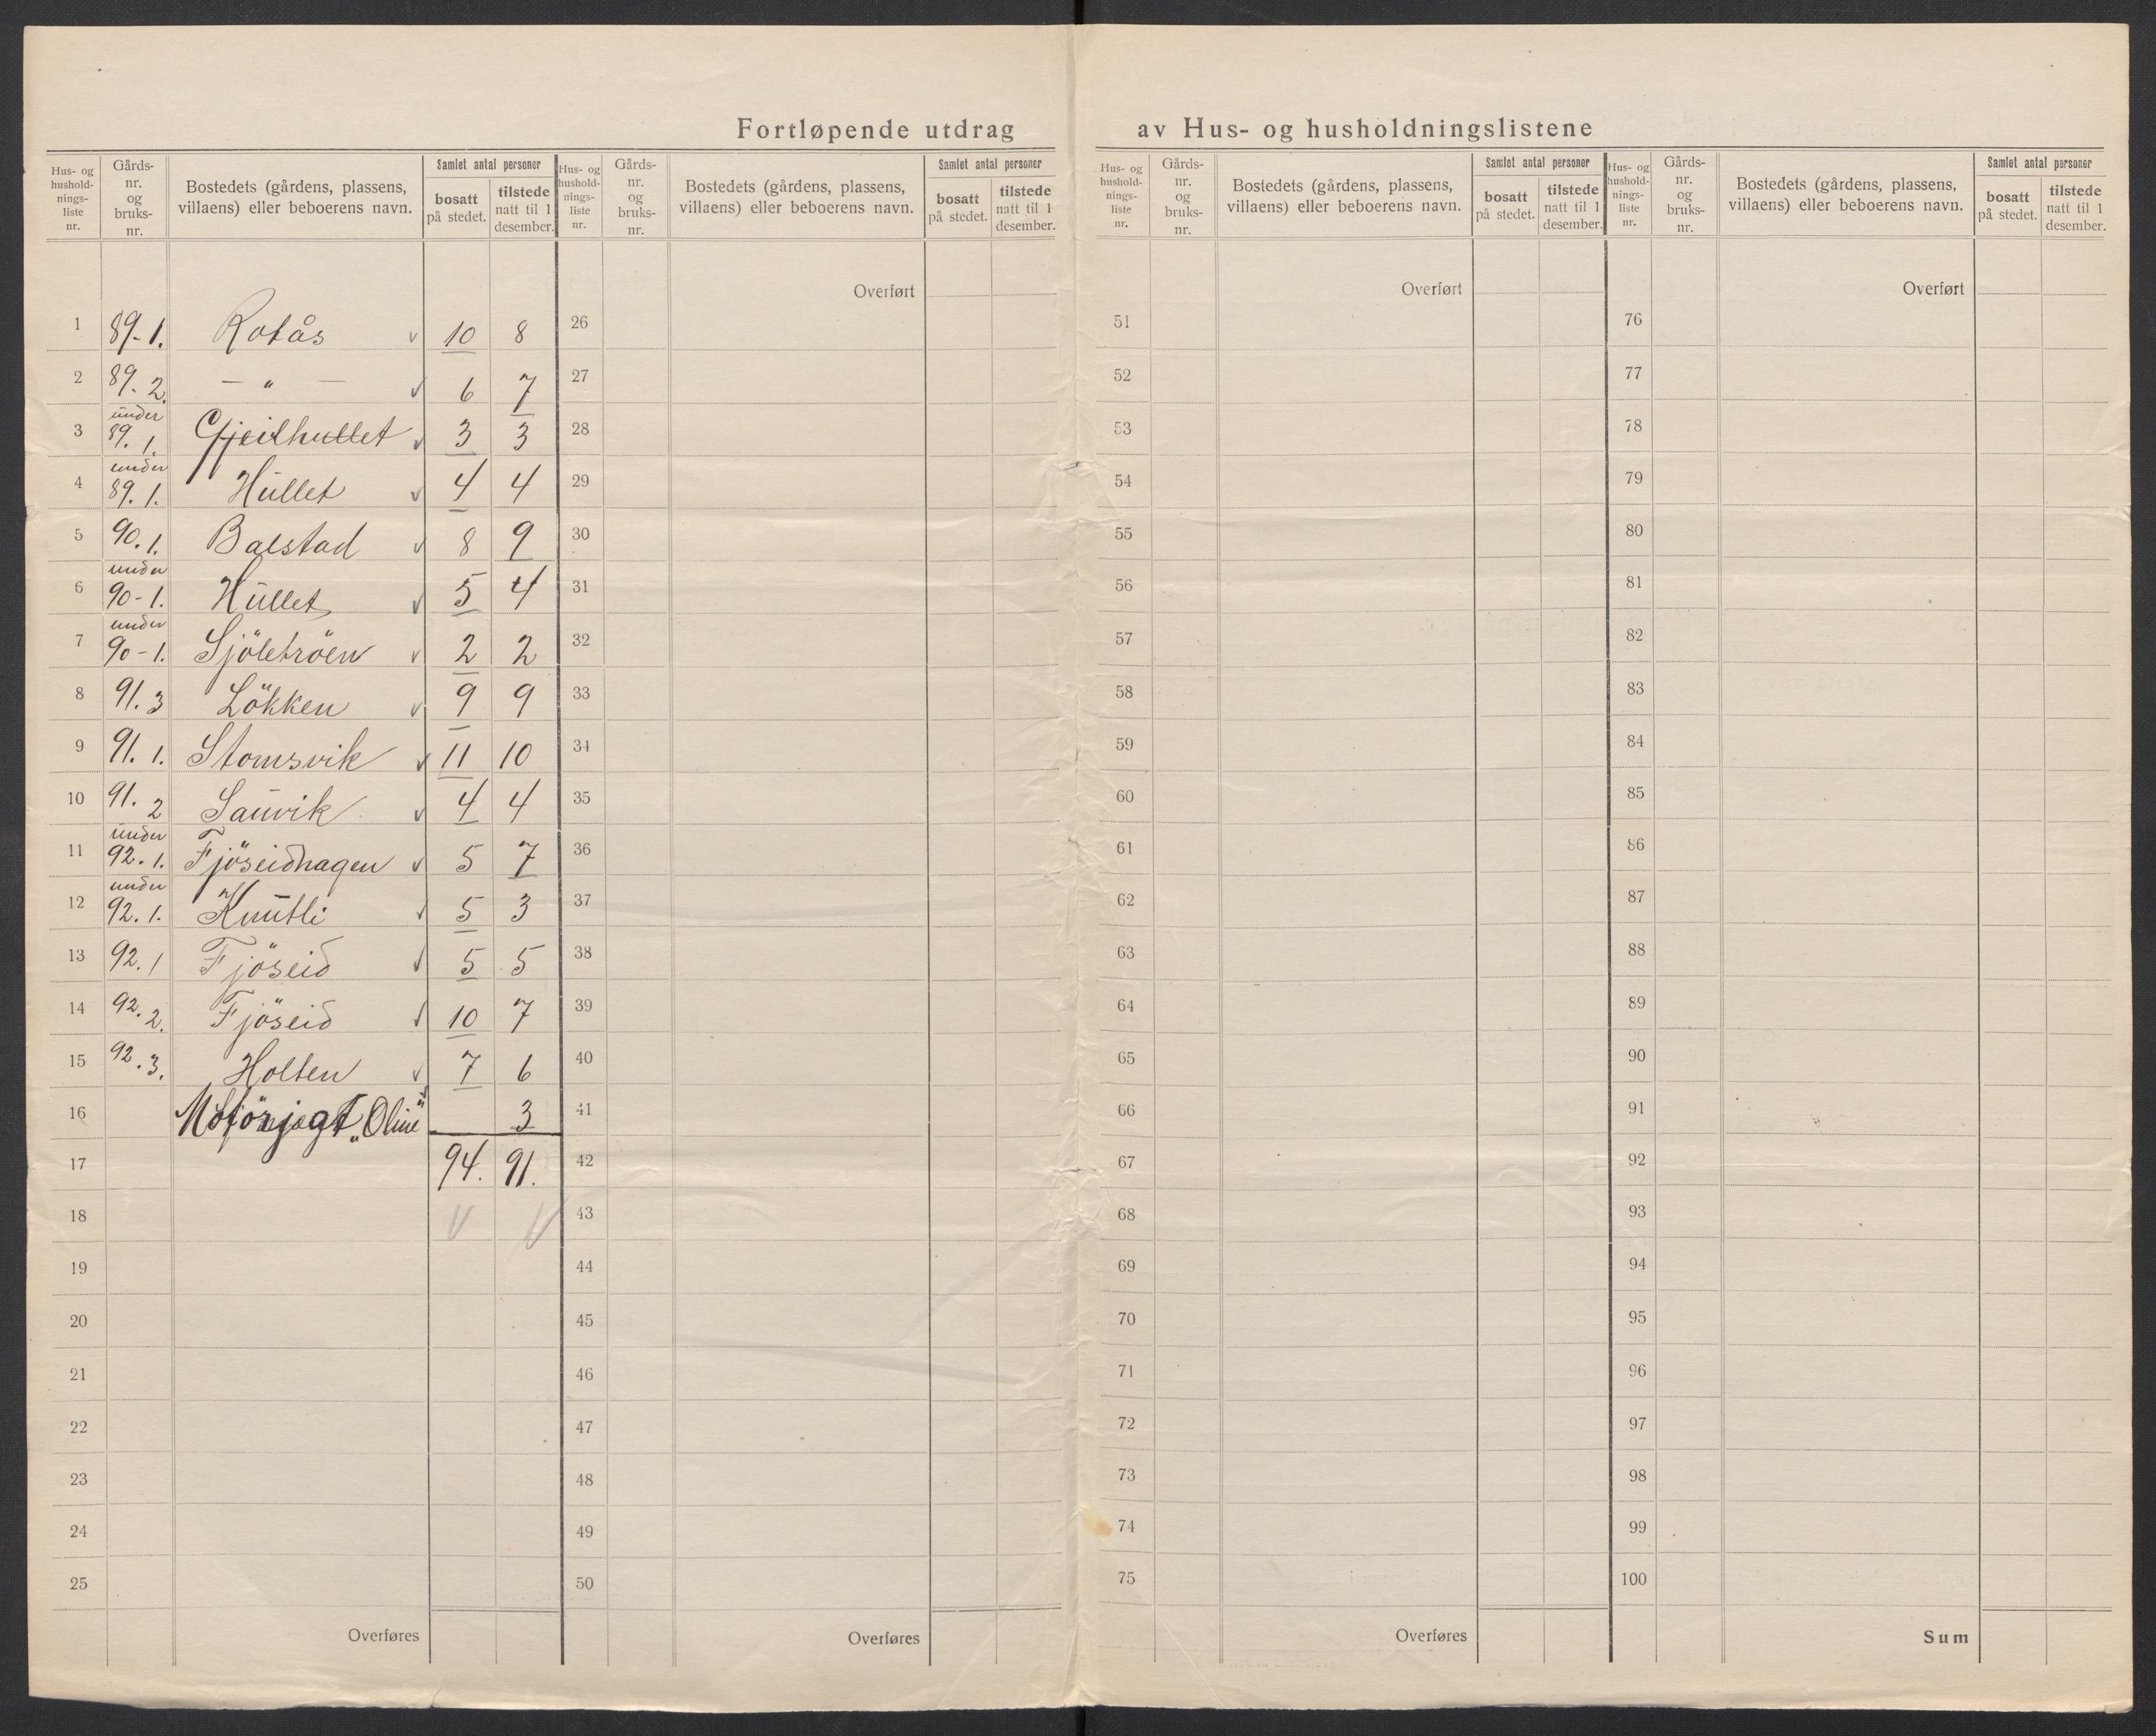 Fortløpende utdrag av Hus- og husholdningslistene
Hus- og husholdnings-liste nr. | Gårds-nr. og bruks-nr. | Bostedets (gårdens, plassens, villaens) eller beboerens navn. | Samlet antal personer | bosatt på stedet. | tilstede natt til 1 desember.
Hus- og husholdnings-liste nr. | Gårds-nr. og bruks-nr. | Bostedets (gårdens, plassens, villaens) eller beboerens navn. | Samlet antal personer | bosatt på stedet. | tilstede natt til 1 desember.
Hus- og husholdnings-liste nr. | Gårds-nr. og bruks-nr. | Bostedets (gårdens, plassens, villaens) eller beboerens navn. | Samlet antal personer | bosatt på stedet. | tilstede natt til 1 desember.
Hus- og husholdnings-liste nr. | Gårds-nr. og bruks-nr. | Bostedets (gårdens, plassens, villaens) eller beboerens navn. | Samlet antal personer | bosatt på stedet. | tilstede natt til 1 desember.
Overført Overført Overført
1 89-1. Rotås v 10 8 26 51 76
2 89-2. — " — v 6 7 27 52 77
3 under 89.1. Gjeilhullet v 3 3 28 53 78
4 under 89.1. Hullet v 4 4 29 54 79
5 90.1. Balstad v 8 9 30 55 80
6 under 90-1. Hullet v 5 4 31 56 81
7 under 90-1. Sjöletröen v 2 2 32 57 82
8 91.3 Lökken v 9 9 33 58 83
9 91.1. Stomsvik v 11 10 34 59 84
10 91.2 Sauvik v 4 4 35 60 85
11 under 92.1. Fjöseidhagen v 5 7 36 61 86
12 under 92.1. Knutli v 5 3 37 62 87
13 92.1 Fjöseid v 5 5 38 63 88
14 92.2. Fjöseid v 10 7 39 64 89
15 92.3. Holten v 7 6 40 65 90
16 Motorjagt „Oline" 3 41 66 91
17 94. 91. 42 67 92
18 v v 43 68 93
19 44 69 94
20 45 70 95
21 46 71 96
22 47 72 97
23 48 73 98
24 49 74 99
25 50 75 100
Overføres Overføres Overføres Sum